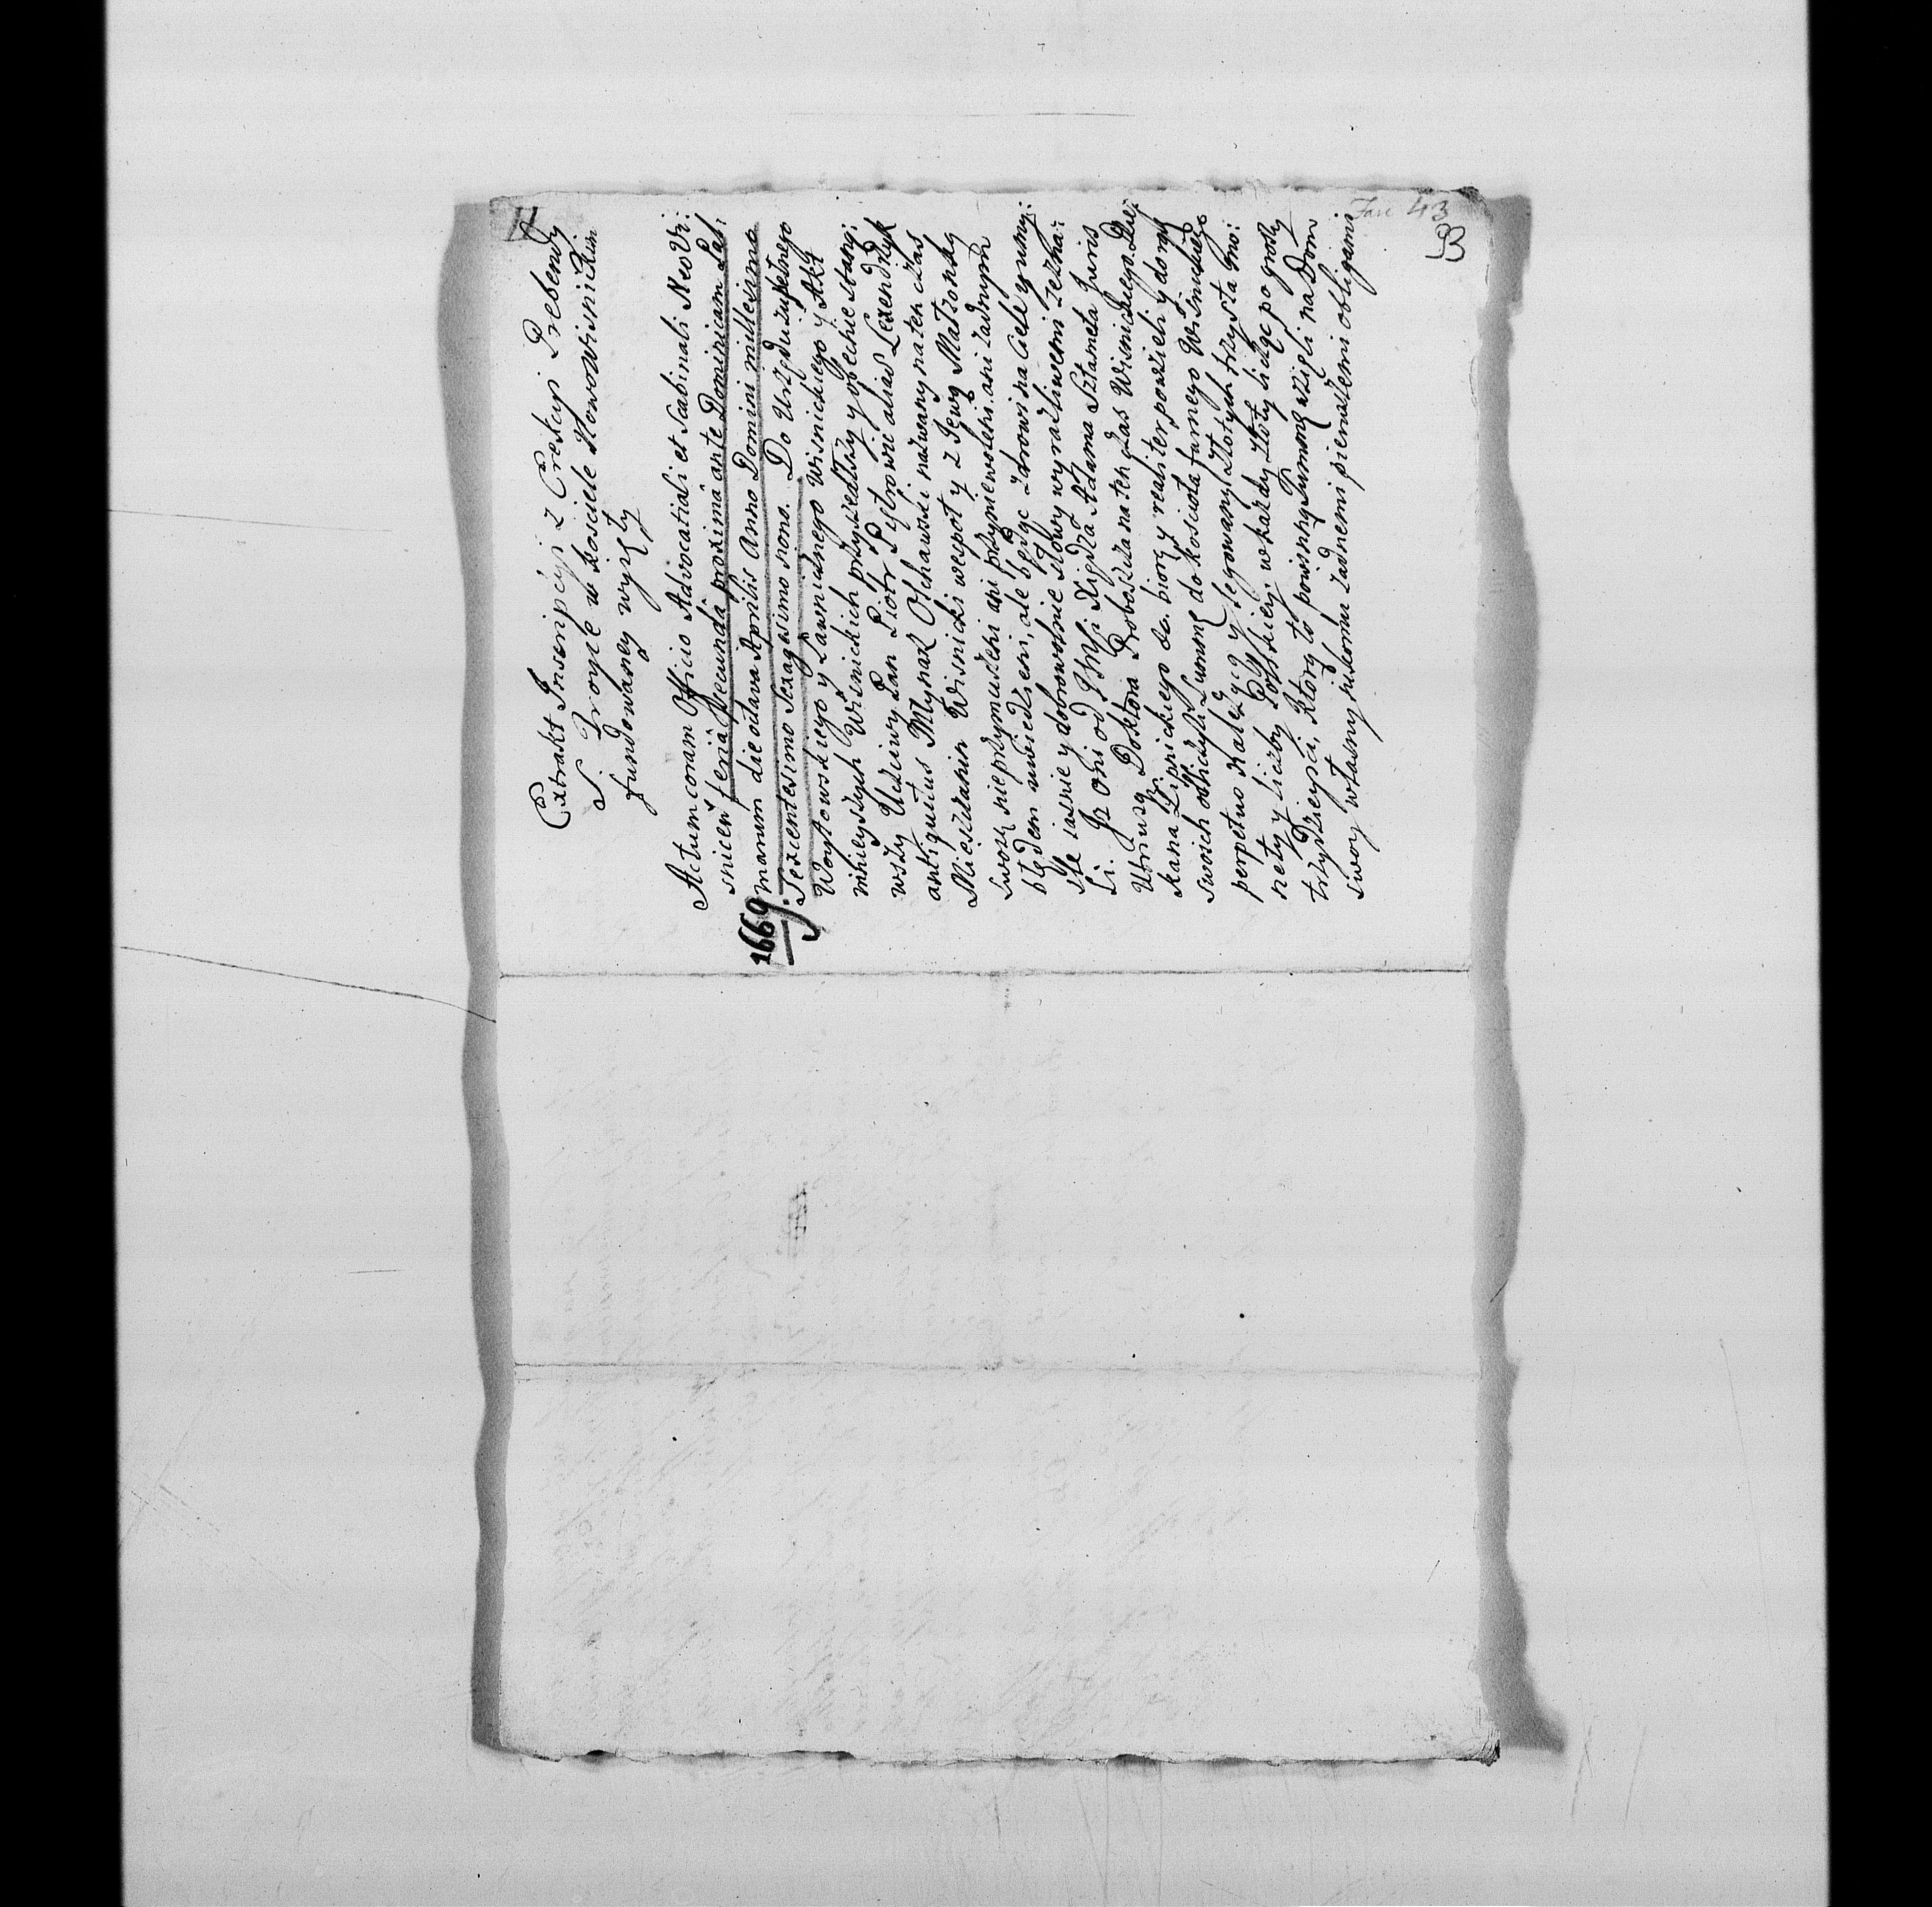 Fasc 43
93
Extrakt Inscripcyi z Erekcyi Prebendy
S. Troyce w kosciele Nowowisnickim
fundowaney wyięty
Actum coram Officio Advocatiali et Scabinali Neo Vi:
snicen feriâ secundâ proximâ ante Dominicam Pal:
marum die octava Aprilis Anno Domini millesimo
1669. Sexcentesimo Sexagesimo nono. Do Urzędu zupełnego
Woytowskiego y Ławniczego Wisnickiego y Akt
ninieyszych Wisnickich przyszedłszy y oblicznie stany:
wszy Uczciwy Pan Piotr Pystrowic alias Lexendrzyk
antiquitus Młynarz Olchawski nazwany na ten czas
Mieszczanin Wisnicki wespoł y z Jewą Małzonką
swoią nieprzymuszeni ani przyniewoleni ani zadnym
błędem uwiedzieni, ale będąc zdrowi na ciele y umy:
śle iasnie y dobrowolnie słowy wyrazliwemi zezna:
li. Jz oni od JMsci Xiędza Adama Sztameta Juris
Utriusq Doktora Proboszcza na ten czas Wisnickiego Dzie:
kana Lipnickiego &c. biorą y realiter powzieli y do rąk
swoich odliczyli Summę do koscioła farnego Wisnickiego
perpetuo należącą y legowaną Złotych trzysta mo:
nety y liczby Polskiey, w każdy Złoty licząc po groszy
trzydziesci, Ktorą to powinną Summę wzięli na Dom
swoy własny nikomu żadnemi pieniądzmi obligami